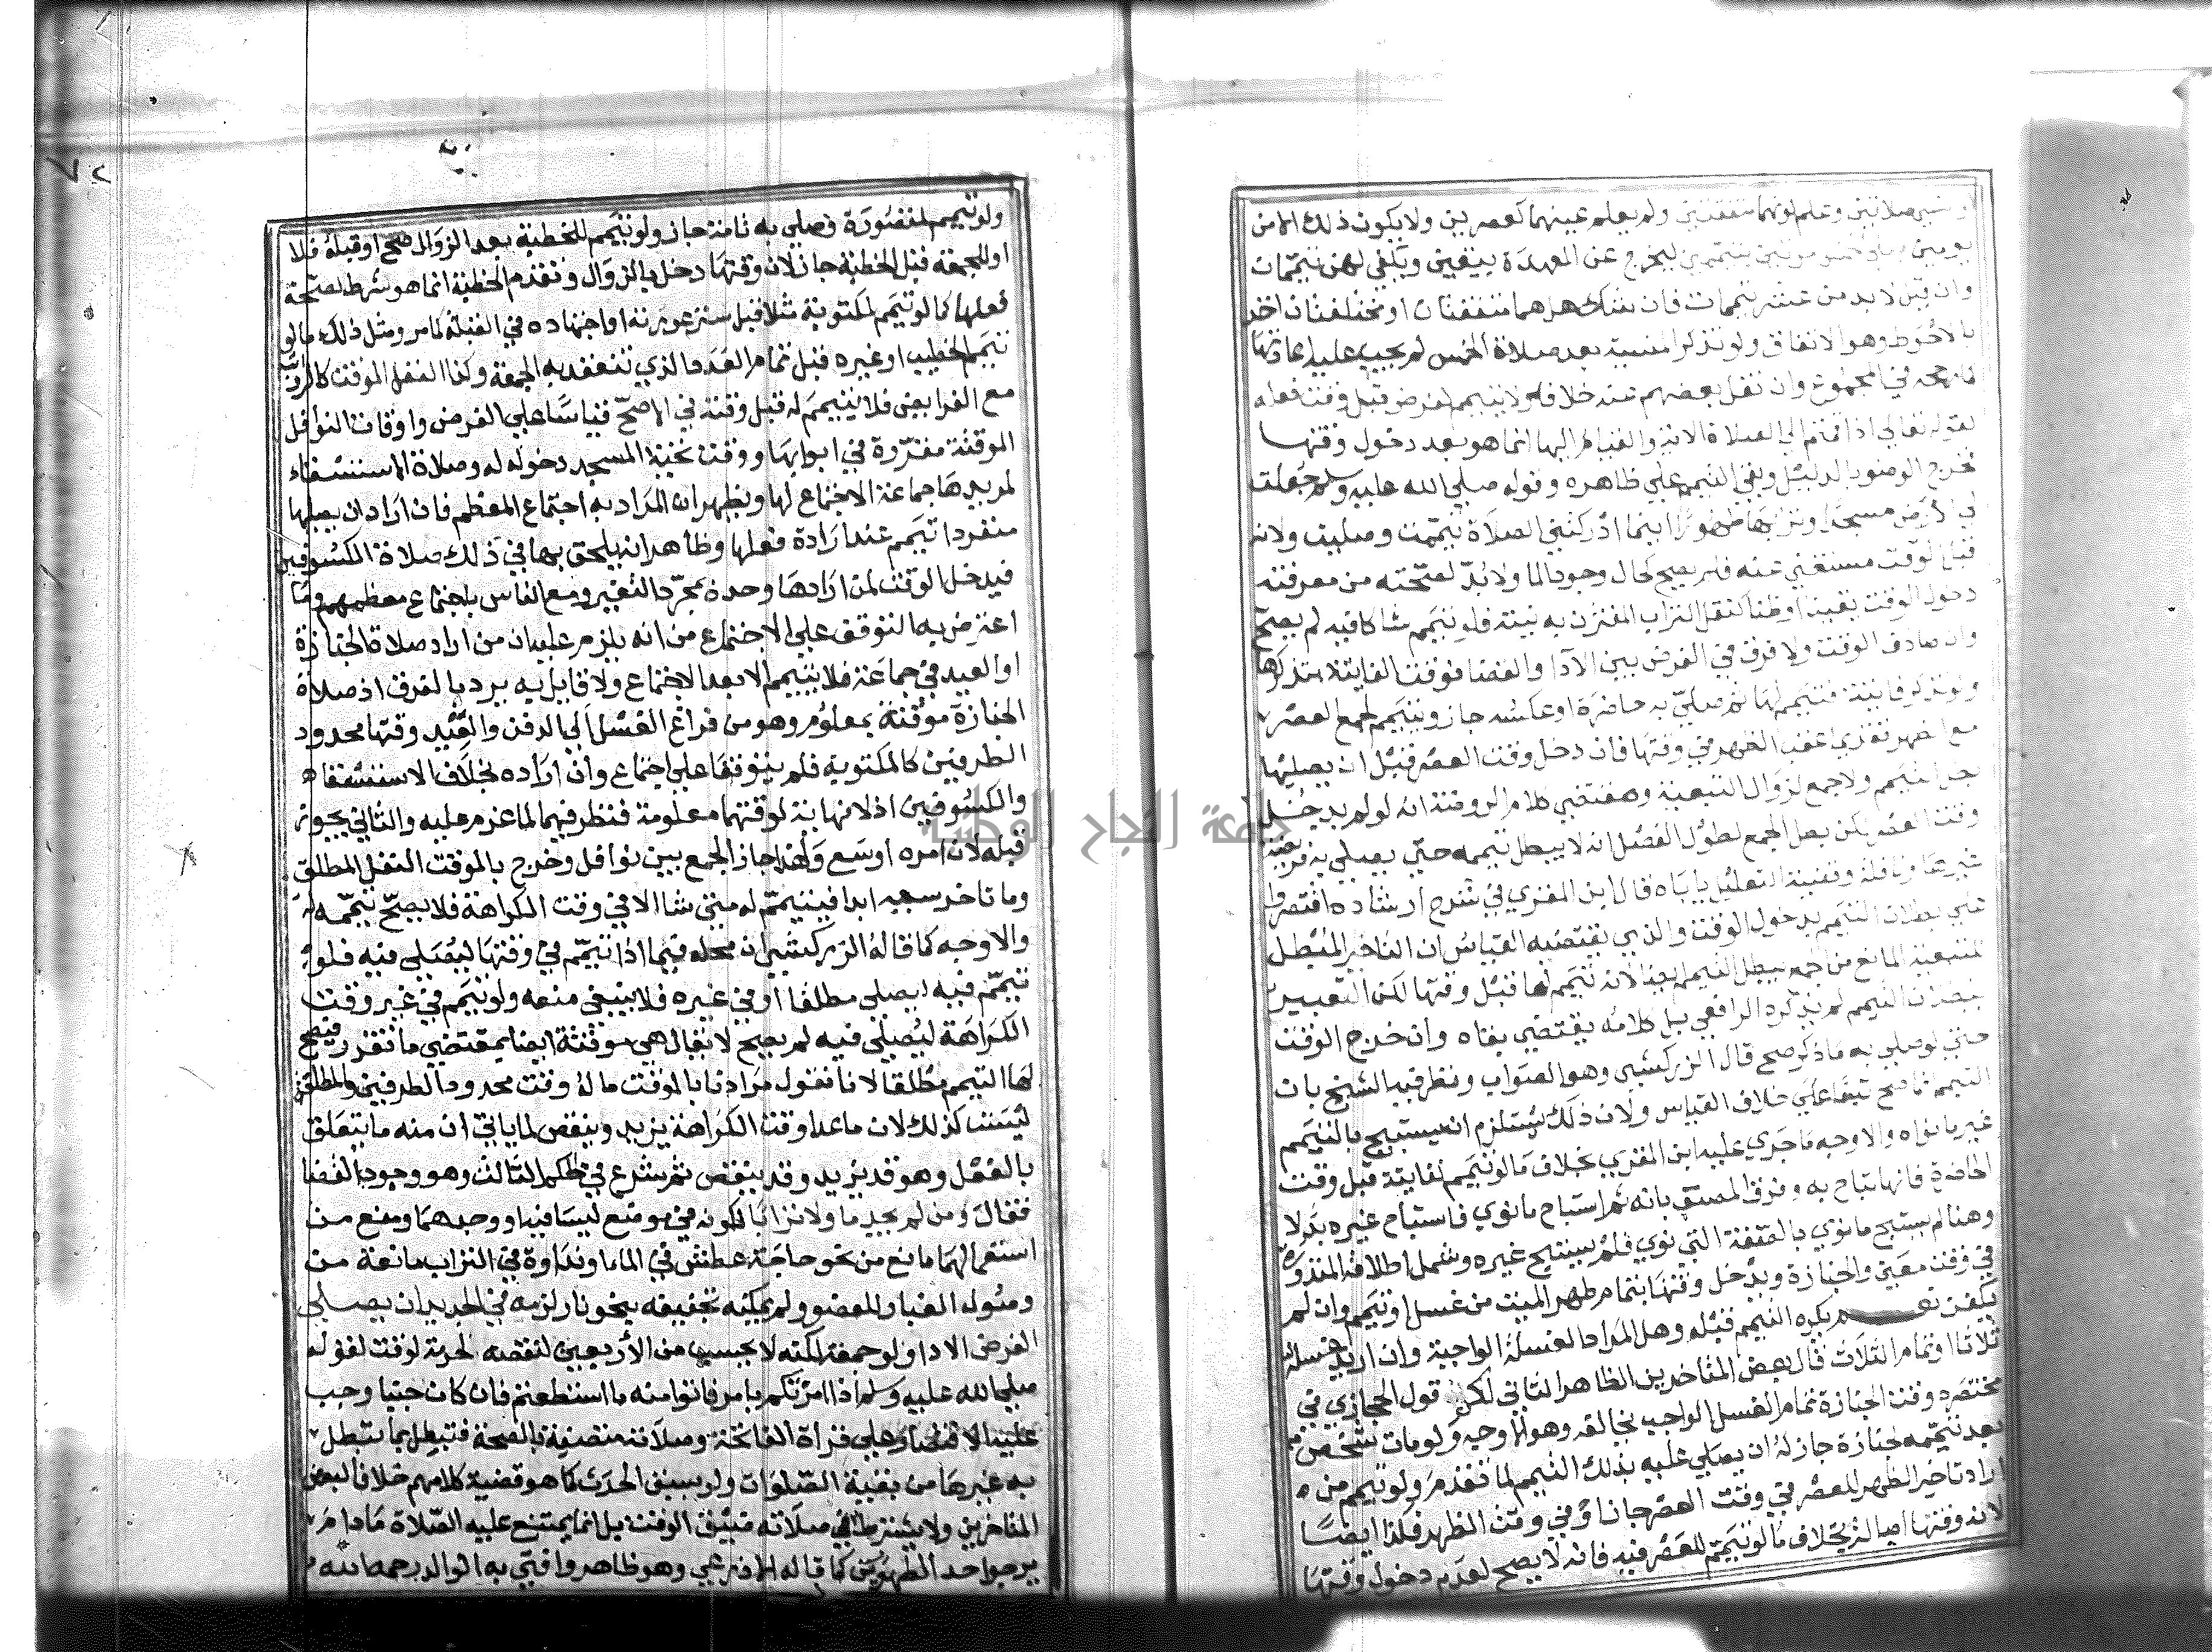 او نسي صلاتين وعلم كونهما متفقتين ولم يعلم عينهما كعصرين ولا يكون ذلك الا من
يومين
وان قيل لا بد من عشر تيممات فان شك هل هما متفقتان او مختلفتان اخذ
بالاحوط وهو الاتفاق ولو تذكر المنسية بعد صلاة الخمس لم يجب عليه اعادتها
كما رجحه في المجموع وان نقل بعضهم عنه خلافه ولا يتيمم لفرض قبل وقت فعله
لقوله تعالى اذا قمتم الي الصلاة الاية والقيام اليها انما هو بعد دخول وقتها
خرج الوضو بالدليل وبقي التيمم علي ظاهره وقوله صلي الله عليه وسلم جعلت
لي الارض مسجدا وترابها طهورا اينما ادركتني الصلاة تيممت وصليت ولانه
قبل الوقت مستغني عنه فلم يصح كحال وجود الما ولا بد لصحته من معرفته
دخول الوقت يقينا او ظنا لنقل التراب المقترن به نيته فلو تيمم شاكا فيه لم يصح
وان صادف الوقت ولا فرق في الفرض بين الادا والقضا فوقت الفايتة تذكرها
ولو تذكر فايتة فتيمم لها ثم صلي به حاضرة او عكسه جاز ويتيمم لجمع العصر
مع الظهر تقديما عقب الظهر في وقتها فان دخل وقت العصر قبل ان يصليها
بطل التيمم ولا جمع لزوال التبعية ومقتضي كلام الروضة انه لو لم يدخل
وقت العصر لكن بطل الجمع لطول الفصل انه لا يبطل تيممه حتي يصلي به فريضة
غيرها ونافلة وقضية التعليل ياباه قال ابن المقري في شرح ارشاده اقتصروا
علي بطلان التيمم بدخول الوقت والذي يقتضيه القياس ان التاخير المبطل
للتبعية المانع من الجمع يبطل التيمم ايضا لانه تيمم لها قبل وقتها لكن التعبير
ببطلان التيمم لم يذكره الرافعي بل كلامه يقتضي بقاه وان خرج الوقت
حتي لو صلي به ما ذكر صح قال الزركشي وهو الصواب ونظر فيه الشيخ بان
التيمم انما صح تبعا علي خلاف القياس ولان ذلك يستلزم انه يستبيح بالتيمم
غير ما نواه والاوجه ما جري عليه ابن المقري بخلاف ما لو تيمم لفايتة قبل وقت
الحاضرة فانها تباح به وفرق المصنف بانه ثم استباح ما نوي فاستباح غيره بدلا
وهنا لم يستبح ما نوي بالصفة التي نوي فلم يستبيح غيره وشمل اطلاقه المنذورة
في وقت معين والجنازة ويدخل وقتها بتمام طهر الميت من غسل او تيمم وان لم
يكفن نعم يكره التيمم قبله وهل المراد الغسلة الواجبة وان اريد غسله
ثلاثا او تمام الثلاث قال بعض المتاخرين الظاهر الثاني لكن قول الحجازي في
مختصره وقت الجنازة تمام الغسل الواجب يخالفه وهو الاوجه ولو مات شخص
بعد تيممه لجنازة جاز له ان يصلي عليه بذلك التيمم لما تقدم ولو تيمم من
اراد تاخير الظهر للعصر في وقت العصر جاز او في وقت الظهر فكذا ايضا
لانه وقتها اصالة بخلاف ما لو تيمم للعصر فيه فانه لا يصح لعدم دخول وقتها
ولو تيمم لمقصورة فصلي به تامة جاز ولو تيمم للخطبة بعد الزوال صح او قبله فلا
او للجمعة قبل الخطبة جاز لان وقتها دخل بالزوال وتقدم الخطبة انما هو شرط لصحة
فعلها كما لو تيمم لمكتوبة مثلا قبل ستر عورته او اجتهاده في القبلة كما مر ومثل ذلك ما لو
تيمم الخطيب او غيره قبل تمام العدد الذي تنعقد به الجمعة وكذا النفل الموقت كالرواتب
مع الفرايض فلا يتيمم له قبل وقته في الاصح قياسا علي الفرض واوقات النوافل
الموقتة مقررة في ابوابها ووقت تحية المسجد دخوله له وصلاة الاستسقاء
لمريدها جماعة الاجتماع لها ويظهر ان المراد به اجتماع المعظم فان اراد ان يصليها
منفردا تيمم عند ارادة فعلها وظاهر انه يلحق بها في ذلك صلاة الكسوفين
فيدخل الوقت لمن ارادها وحده بمجرد التغير ومع الناس باجتماع معظمهم وما
اعترض به التوقف علي الاجتماع من انه يلزم عليه ان من اراد صلاة الجنازة
او العيد في جماعة فلا يتيمم الا بعد الاجتماع ولا قايل به يرد بالفرق اذ صلاة
الجنازة موقتة بمعلوم وهو من فراغ الغسل الي الدفن والعيد وقتها محدود
الطرفين كالمكتوبة فلم يتوقفا علي اجتماع وان اراده بخلاف الاستسقاء
والكسوفين اذ لا نهاية لوقتهما معلومة فنظر فيهما لما عزم عليه والثاني يجوز
قبله لان امره اوسع ولهذا جاز الجمع بين نوافل وخرج بالموقت النفل المطلق
وما تاخر سببه ابدا فيتيمم له متي شا الا في وقت الكراهة فلا يصح تيممه له
والاوجه كما قاله الزركشي ان محله فيما اذا تيمم في وقتها ليصلي فيه فلو
تيمم فيه ليصلي مطلقا او في غيره فلا ينبغي منعه ولو تيمم في غير وقت
الكراهة ليصلي فيه لم يصح لا يقال هي موقتة ايضا بمقتضي ما تقرر فيصح
لها التيمم مطلقا لانا نقول مرادنا بالموقت ما له وقت محدود الطرفين والمطلقة
ليست كذلك لان ما عدا وقت الكراهة يزيد وينقص لما ياتي ان منه ما يتعلق
بالفعل وهو قد يزيد وقد ينقص ثم شرع في الحكم الثالث وهو وجوب القضا
فقال ومن لم يجد ما ولا ترابا لكونه في موضع ليسا فيه او وجدهما ومنع من
استعمالهما مانع من نحو حاجة عطش في الما او نداوة في التراب مانعة من
وصول الغبار للعضو ولم يمكنه تجفيفه بنحو نار لزمه في الجديد ان يصلي
الفرض الادا ولو جمعة لكنه لا يحسب من الاربعين لنقصه لحرمة الوقت لقوله
صلي الله عليه وسلم اذا امرتكم بامر فاتوا منه ما استطعتم فان كان جنبا وجب
عليه الاقتصار علي قراة الفاتحة وصلاته متصفة بالصحة فتبطل بما تبطل
به غيرها من بقية الصلوات ولو بسبق الحدث كما هو قضية كلامهم خلافا لبعض
المتاخرين ولا يشترط في صلاته ضيق الوقت بل انما يمتنع عليه الصلاة ما دام
يرجو احد الطهورين كما قاله الاذرعي وهو ظاهر وافتي به الوالد رحمه الله
جامعة النجاح الوطنية